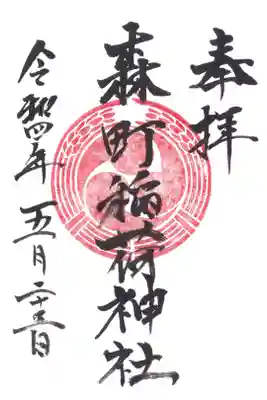 奉拝
森町稲荷神社
令和四年五月二十五日